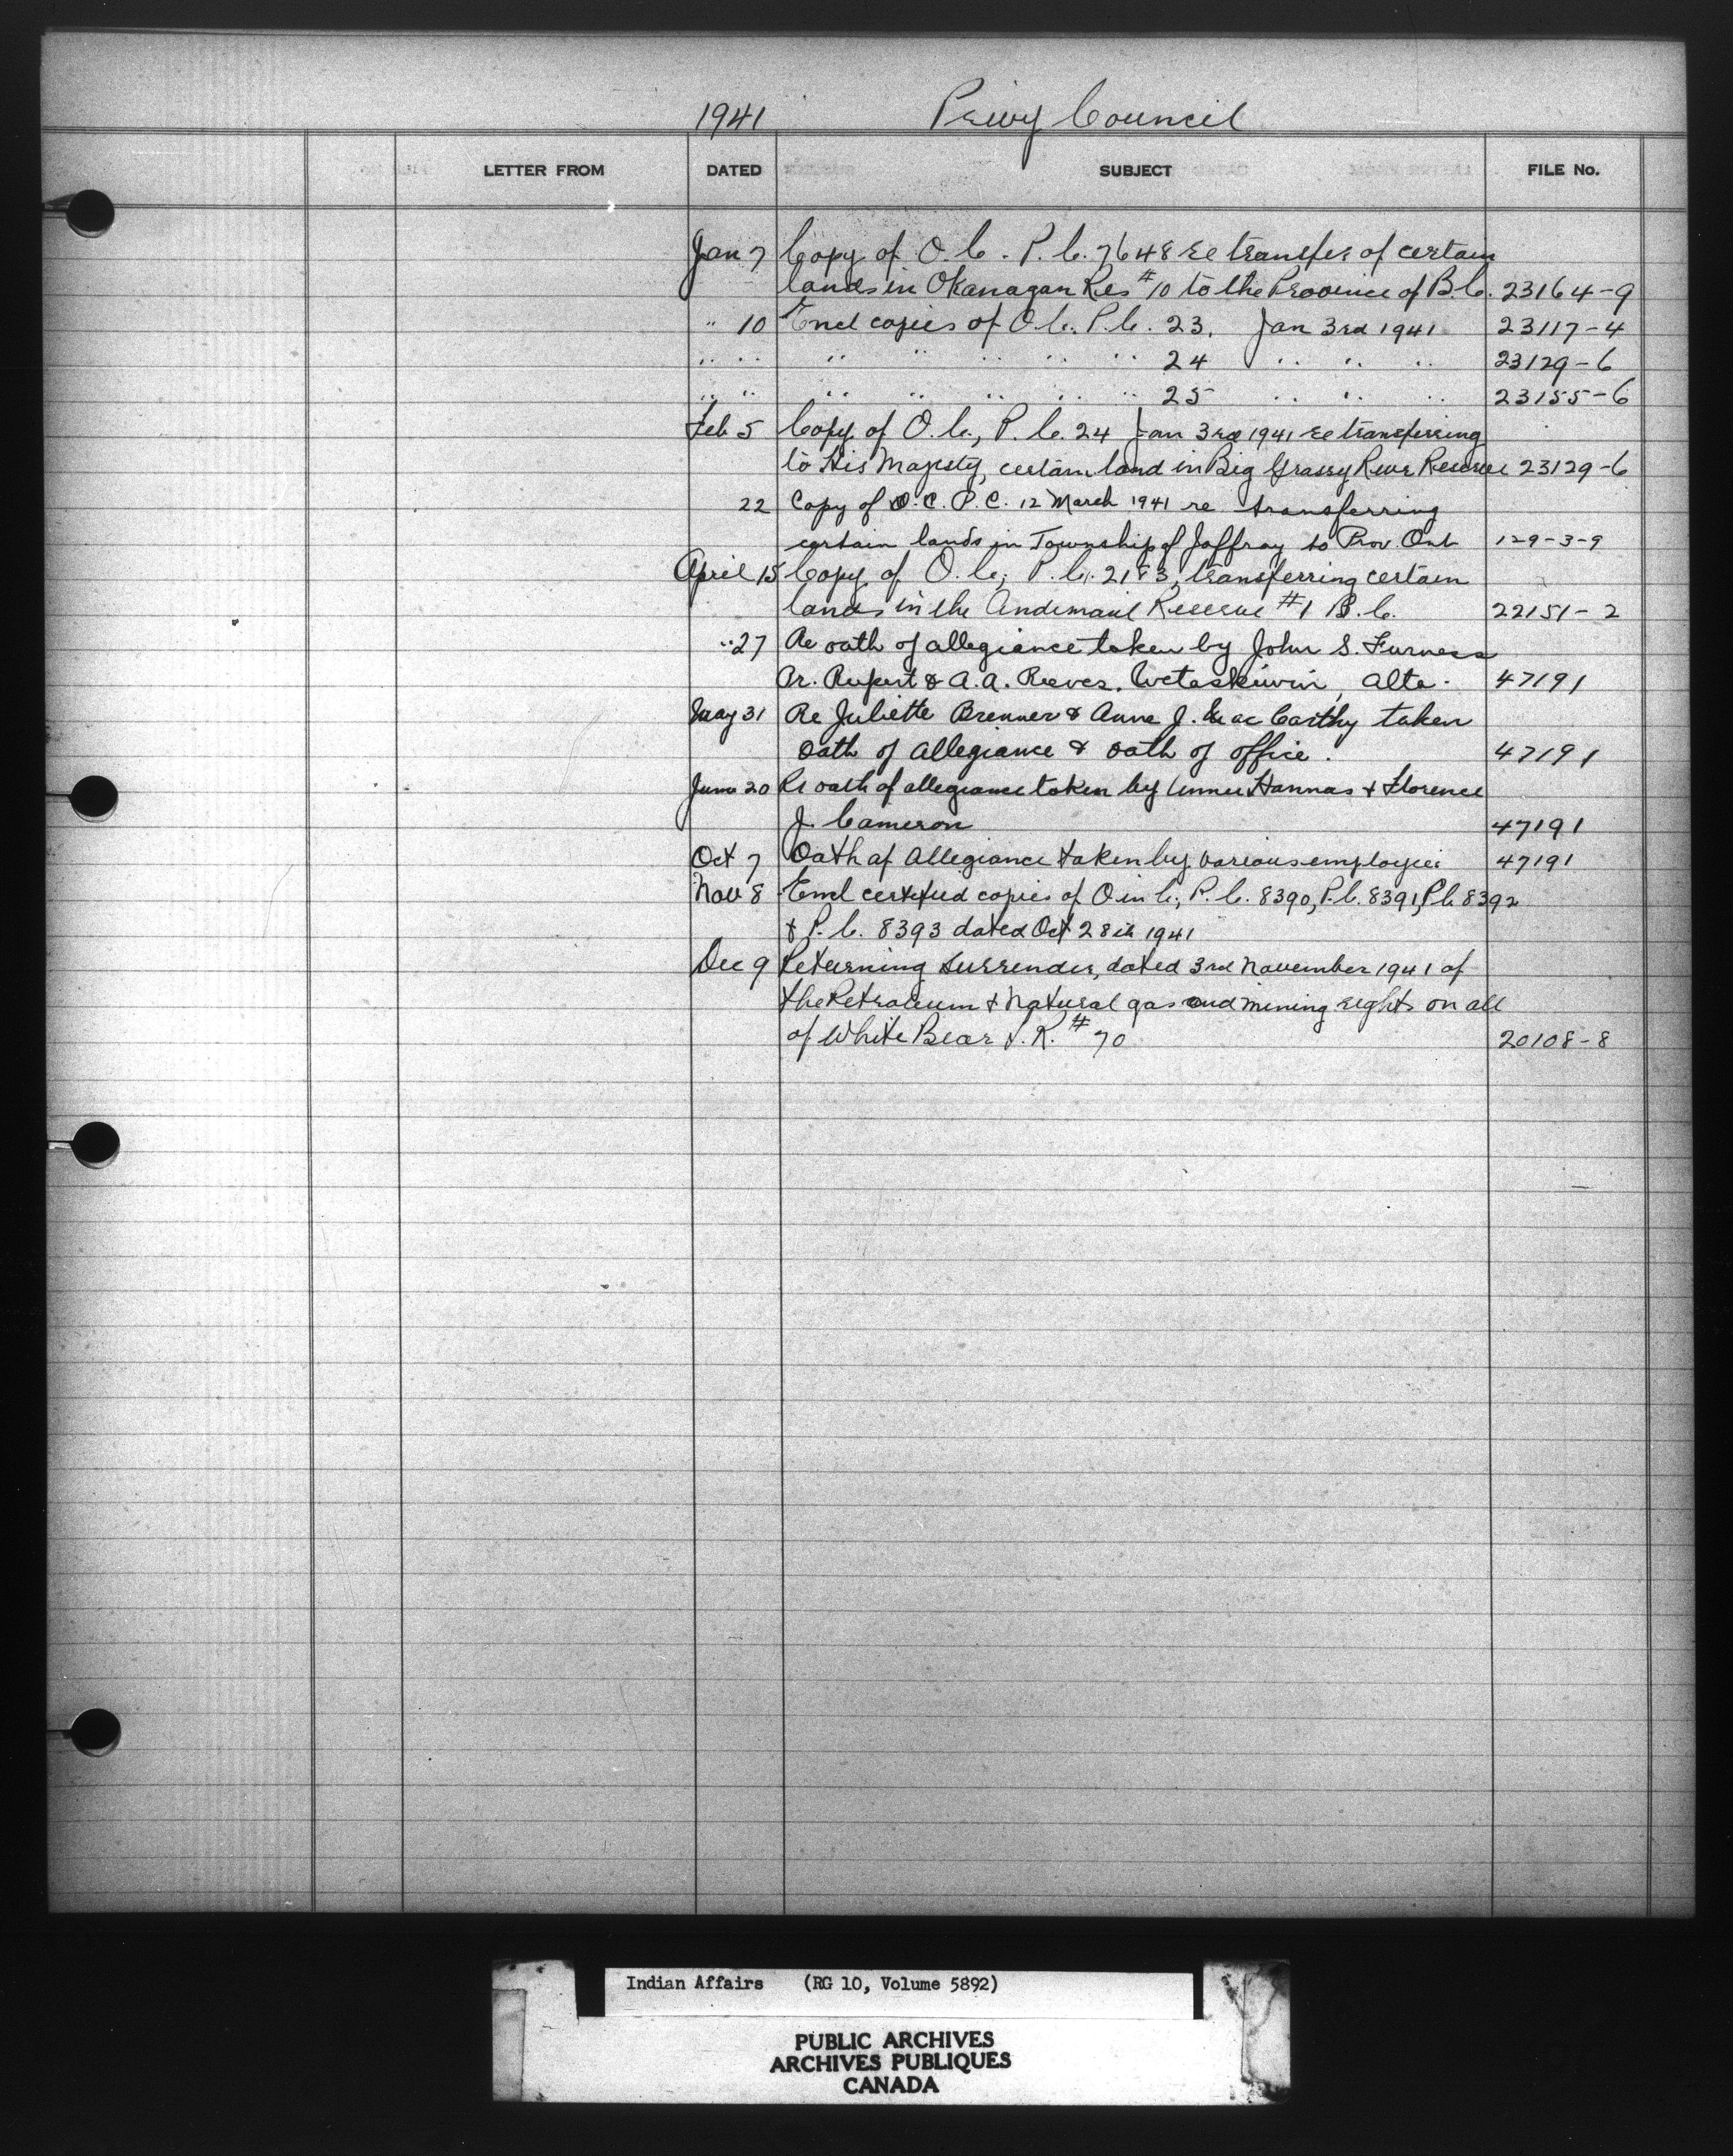 1941 Privy Council
LETTER FROM DATED SUBJECT FILE No.
Jan 7 Copy of O.C. P.C. 7648 re transfer of certain
lands in Okanagan Res #10 to the Province of B.C. 23164-9
" 10 Encl copies of O.C. P.C. 23, Jan 3rd 1941 23117-4
" " " " " " " 24 " " " 23129-6
" " " " " " " 25 " " " 23155-6
Feb 5 Copy of O.C., P.C. 24 Jan 3rd 1941 re transferring
to His Majesty, certain land in Big Grassy River Reserve 23129-6
22 Copy of O.C. P.C. 12 March 1941 re transferring
certain lands in Township of Jaffray to Prov. Ont 129-3-9
April 15 Copy of O.C., P.C. 2183, transferring certain
lands in the Andimaul Reserve #1 B.C. 22151-2
" 27 Re oath of allegiance taken by John S. Furness
Pr. Rupert & A.A. Reeves, Wetaskiwin, Alta. 47191
May 31 Re Juliette Brenner & Anne J. MacCarthy taken
oath of allegiance & oath of office. 47191
June 20 Re oath of allegiance taken by Hannas + Florence
J. Cameron 47191
Oct 7 Oath of Allegiance taken by various employees 47191
Nov 8 Encl certified copies of O in C., P.C. 8390, P.C. 8391, P.C. 8392
& P.C. 8393 dated Oct 28th 1941
Dec 9 Returning Surrender, dated 3rd November 1941 of
the Petroleum + Natural gas and mining rights on all
of White Bear I.R. #70 20108-8
Indian Affairs (RG 10, Volume 5892)
PUBLIC ARCHIVES
ARCHIVES PUBLIQUES
CANADA